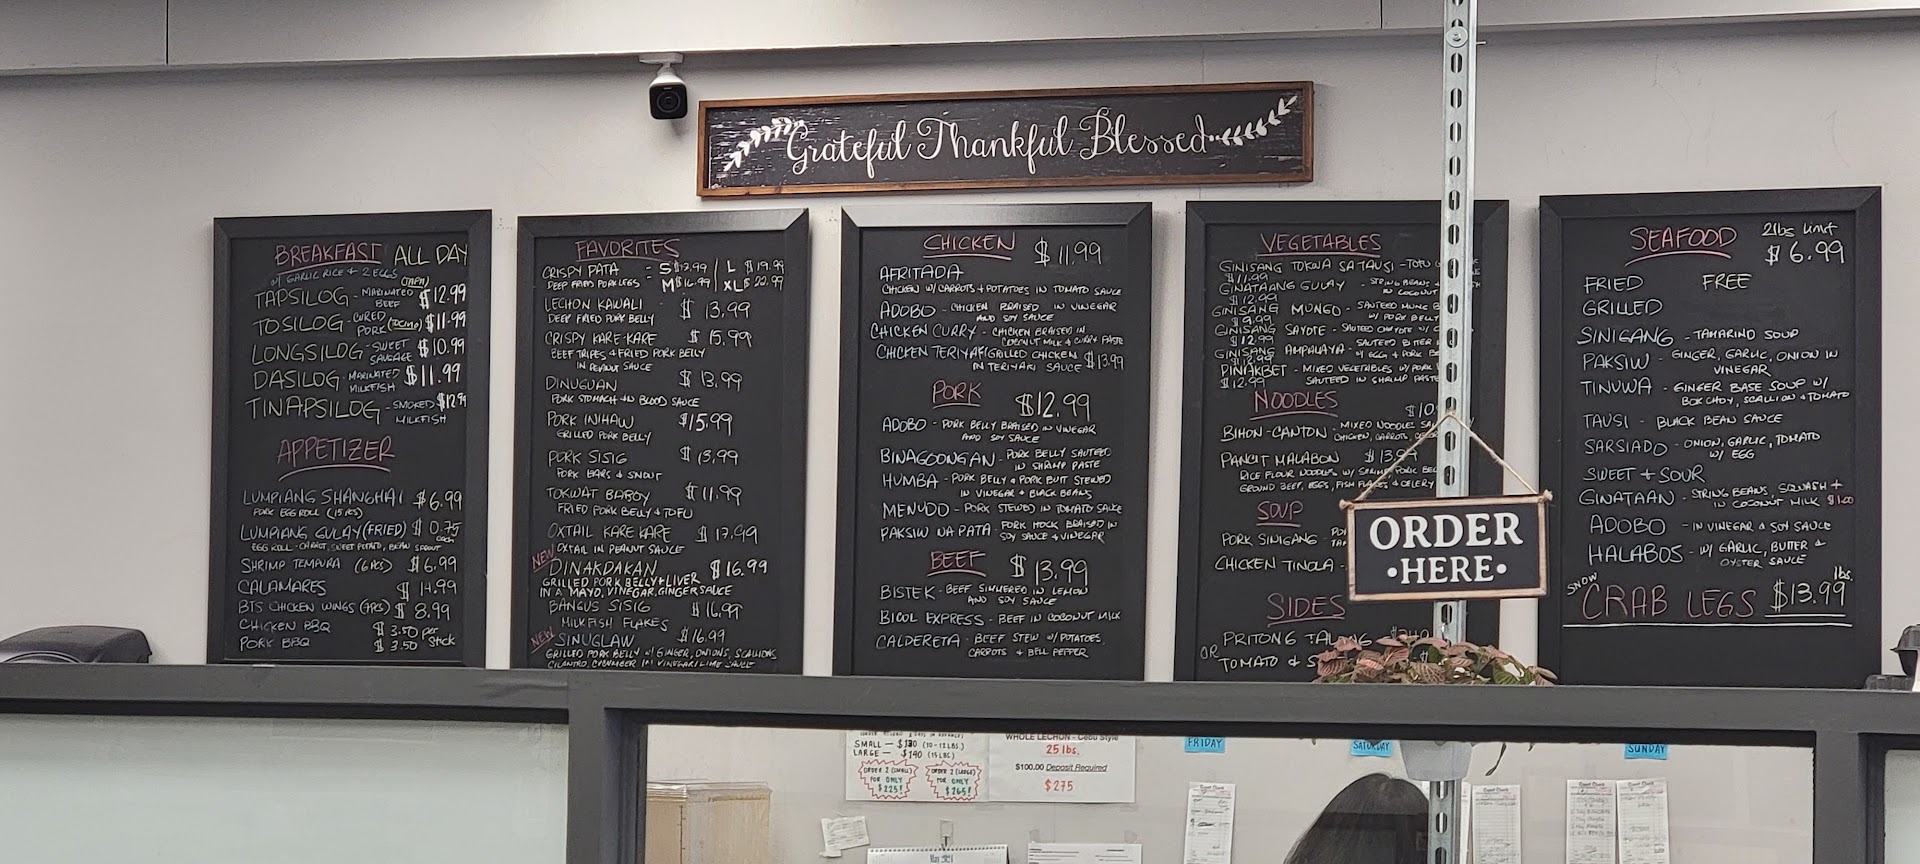 Grateful Thankful Blessed
BREAKFAST ALL DAY
W/ GARLIC RICE & 2 EGGS
TAPSILOG - MARINATED BEEF (TAPA) $12.99
TOSILOG - CURED PORK (TOCINO) $11.99
LONGSILOG - SWEET SAUSAGE $10.99
DASILOG - MARINATED MILKFISH $11.99
TINAPSILOG - SMOKED MILKFISH $12.99
APPETIZER
LUMPIANG SHANGHAI $6.99
PORK EGG ROLL (15 PCS)
LUMPIANG GULAY (FRIED) $0.75 each
EGG ROLL - CARROT, SWEET POTATO, BEAN SPROUT
SHRIMP TEMPURA (6 PCS) $6.99
CALAMARES $14.99
BTS CHICKEN WINGS $8.99
CHICKEN BBQ $3.50 per
PORK BBQ $3.50 stick
FAVORITES
CRISPY PATA - S $12.99 | L $19.99
DEEP FRIED PORK LEGS - M $16.99 | XL $22.99
LECHON KAWALI - $13.99
DEEP FRIED PORK BELLY
CRISPY KARE-KARE $15.99
BEEF TRIPES & FRIED PORK BELLY
IN PEANUT SAUCE
DINUGUAN $13.99
PORK STOMACH IN BLOOD SAUCE
PORK INIHAW $15.99
GRILLED PORK BELLY
PORK SISIG $13.99
PORK EARS & SNOUT
TOKWAT BABOY $11.99
FRIED PORK BELLY & TOFU
OXTAIL KARE KARE $17.99
OXTAIL IN PEANUT SAUCE
NEW DINAKDAKAN $16.99
GRILLED PORK BELLY & LIVER
IN A MAYO, VINEGAR, GINGER SAUCE
BANGUS SISIG $16.99
MILKFISH FLAKES
NEW SINUGLAW $16.99
GRILLED PORK BELLY W/ GINGER, ONIONS, SCALLIONS
CILANTRO, CUCUMBER IN VINEGAR/LIME SAUCE
CHICKEN $11.99
AFRITADA
CHICKEN W/ CARROTS & POTATOES IN TOMATO SAUCE
ADOBO - CHICKEN BRAISED IN VINEGAR
AND SOY SAUCE
CHICKEN CURRY - CHICKEN BRAISED IN
COCONUT MILK & CURRY PASTE
CHICKEN TERIYAKI GRILLED CHICKEN
IN TERIYAKI SAUCE $13.99
PORK $12.99
ADOBO - PORK BELLY BRAISED IN VINEGAR
AND SOY SAUCE
BINAGOONGAN - PORK BELLY SAUTEED
IN SHRIMP PASTE
HUMBA - PORK BELLY & PORK BUTT STEWED
IN VINEGAR & BLACK BEANS
MENUDO - PORK STEWED IN TOMATO SAUCE
PAKSIW NA PATA - PORK HOCK BRAISED IN
SOY SAUCE & VINEGAR
BEEF $13.99
BISTEK - BEEF SIMMERED IN LEMON
AND SOY SAUCE
BICOL EXPRESS - BEEF IN COCONUT MILK
CALDERETA - BEEF STEW W/ POTATOES,
CARROTS & BELL PEPPER
VEGETABLES
GINISANG TOKWA SA TAUSI - TOFU
$11.99
GINATAANG GULAY - STRING BEANS,
$12.99 IN COCONUT
GINISANG MUNGO - SAUTEED MUNG
W/ PORK BELLY
GINISANG SAYOTE - SAUTEED CHAYOTE W/
$12.99
GINISANG AMPALAYA - SAUTEED BITTER
$12.99 W/ EGG & PORK
PINAKBET - MIXED VEGETABLES W/ PORK
$12.99 SAUTEED IN SHRIMP PASTE
NOODLES $10
BIHON-CANTON - MIXED NOODLES
CHICKEN, CARROTS,
PANCIT MALABON $13.99
RICE FLOUR NOODLES W/ SHRIMP, PORK BELLY
GROUND BEEF, EGGS, FISH FLAKES & CELERY
SOUP
PORK SINIGANG -
CHICKEN TINOLA -
SIDES
PRITONG TALONG
OR TOMATO &
ORDER
•HERE•
SEAFOOD 2lbs limit
$6.99
FRIED FREE
GRILLED
SINIGANG - TAMARIND SOUP
PAKSIW - GINGER, GARLIC, ONION IN
VINEGAR
TINUWA - GINGER BASE SOUP W/
BOK CHOY, SCALLION & TOMATO
TAUSI - BLACK BEAN SAUCE
SARSIADO - ONION, GARLIC, TOMATO
W/ EGG
SWEET & SOUR
GINATAAN - STRING BEANS, SQUASH &
IN COCONUT MILK $1.00
ADOBO - IN VINEGAR & SOY SAUCE
HALABOS - W/ GARLIC, BUTTER &
OYSTER SAUCE
SNOW CRAB LEGS $13.99 lbs.
SMALL — $130 (10-12 LBS.)
LARGE — $140 (15 LBS)
ORDER 2 (SMALL) FOR ONLY $225!
ORDER 2 (LARGE) FOR ONLY $265!
WHOLE LECHON - Cebu Style
25 lbs.
$100.00 Deposit Required
$275
FRIDAY
SATURDAY
SUNDAY